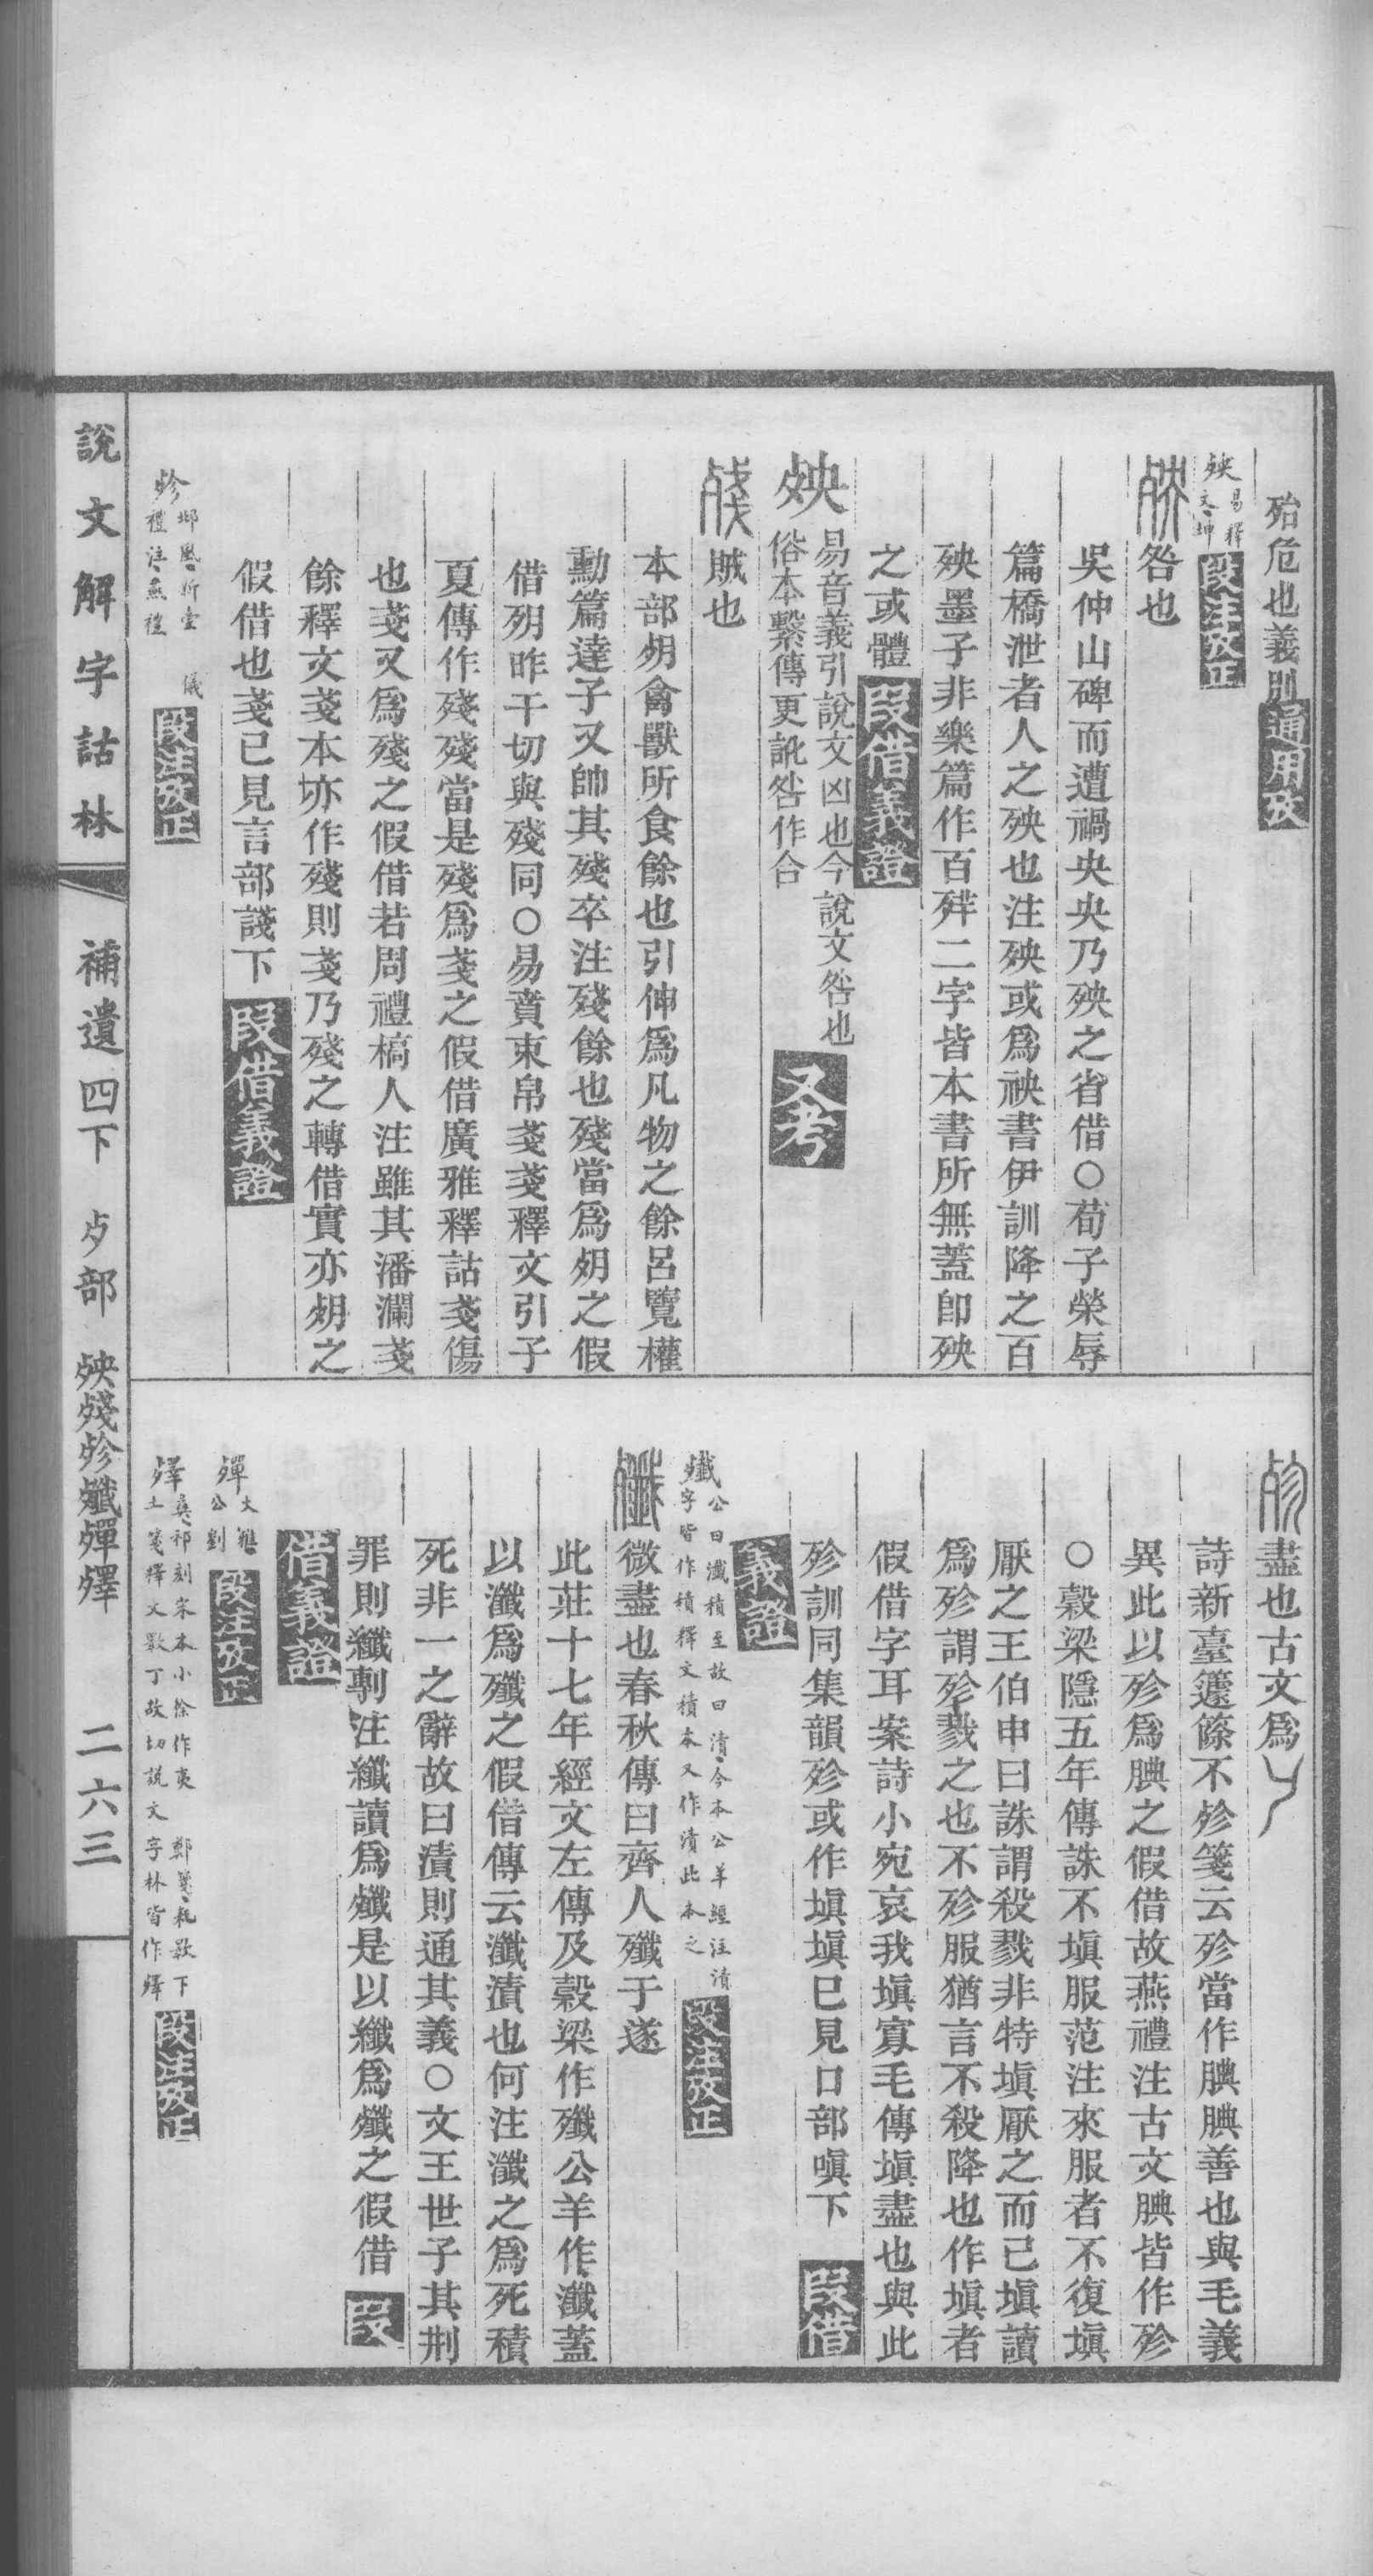 殆危也義別通用攷
殃易釋文坤段注攷正
殃咎也
吳仲山碑而遭禍央央乃殃之省借○荀子榮辱
篇橋泄者人之殃也注殃或爲袂書伊訓降之百
殃墨子非樂篇作百𣨛二字皆本書所無蓋卽殃
之或體段借義證
殃易音義引說文凶也今說文咎也
俗本繫傳更訛咎作合又考
殘賊也
本部𣧻禽獸所食餘也引伸爲凡物之餘呂覽權
勳篇達子又帥其殘卒注殘餘也殘當爲𣧻之假
借𣧻昨干切與殘同○易賁束帛戔戔釋文引子
夏傳作殘殘當是殘爲戔之假借廣雅釋詁戔傷
也戔又爲殘之假借若周禮槁人注雖其潘瀾戔
餘釋文戔本亦作殘則戔乃殘之轉借實亦𣧻之
假借也戔已見言部諓下段借義證
殄邶風新臺儀
禮注燕禮段注攷正
殄盡也古文爲
詩新臺籧篨不殄箋云殄當作腆腆善也與毛義
異此以殄爲腆之假借故燕禮注古文腆皆作殄
○穀梁隱五年傳誅不塡服范注來服者不復塡
厭之王伯申曰誅謂殺戮非特塡厭之而已塡讀
爲殄謂殄戮之也不殄服猶言不殺降也作塡者
假借字耳案詩小宛哀我塡寡毛傳塡盡也與此
殄訓同集韻殄或作塡塡已見口部嗔下段借
義證
殲公曰瀸積至故曰漬今本公羊經注漬
字皆作積釋文積本又作漬此本之段注攷正
殲微盡也春秋傳曰齊人殲于遂
此莊十七年經文左傳及穀梁作殲公羊作瀸蓋
以瀸爲殲之假借傳云瀸漬也何注瀸之爲死積
死非一之辭故曰漬則通其義○文王世子其刑
罪則纖剸注纖讀爲殲是以纖爲殲之假借段
借義證
殫大雅
公劉段注攷正
殬裒祁刻宋本小徐作𡙇鄭箋耗斁下
土箋釋文斁丁故切說文字林皆作殬段注攷正
說文解字詁林
補遺四下
歺部
殃殘殄殲殫殬
二六三